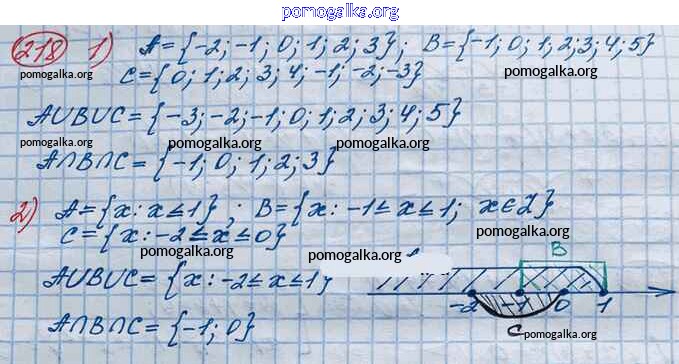 pomogalka.org
218 1) A={-2;-1;0;1;2;3}; B={-1;0;1;2;3;4;5}
pomogalka.org pomogalka.org pomogalka.org
C={0;1;2;3;4;-1;-2;-3}
A∪B∪C={-3;-2;-1;0;1;2;3;4;5}
pomogalka.org pomogalka.org
A∩B∩C={-1;0;1;2;3}
pomogalka.org
2) A={x:x≤1}; B={x:-1≤x≤1; x∈Z}
pomogalka.org pomogalka.org
C={x:-2≤x≤0}
pomogalka.org
B
A∪B∪C={x:-2≤x≤1}
-2 -1 0 1
A∩B∩C={-1;0}
C
pomogalka.org